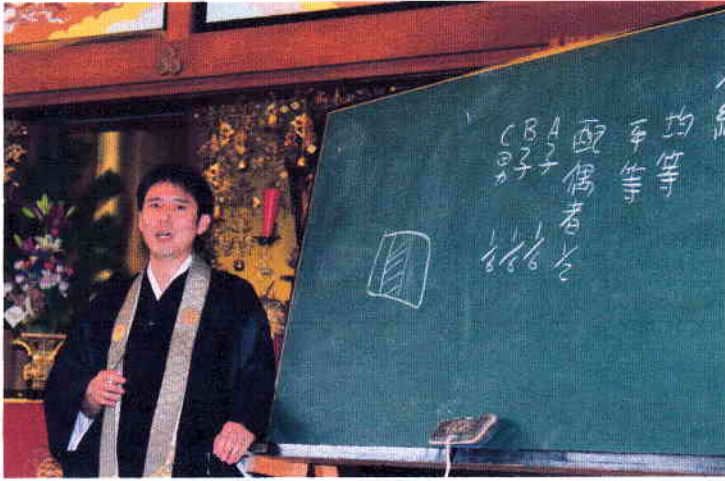 均等
平等
配偶者 1/2
A子 1/6
B子 1/6
C男 1/6